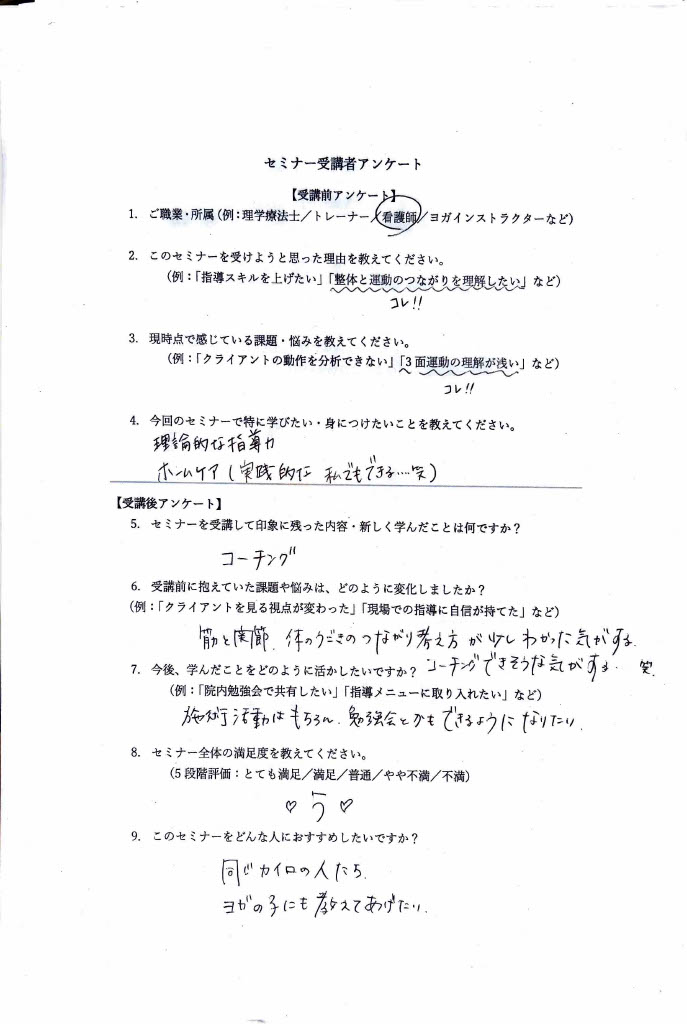 セミナー受講者アンケート
【受講前アンケート】
1. ご職業・所属（例：理学療法士／トレーナー／看護師／ヨガインストラクターなど）
2. このセミナーを受けようと思った理由を教えてください。
（例：「指導スキルを上げたい」「整体と運動のつながりを理解したい」など）
コレ!!
3. 現時点で感じている課題・悩みを教えてください。
（例：「クライアントの動作を分析できない」「3面運動の理解が浅い」など）
コレ!!
4. 今回のセミナーで特に学びたい・身につけたいことを教えてください。
理論的な指導力
ホームケア（実践的な 私でもできる…笑）
【受講後アンケート】
5. セミナーを受講して印象に残った内容・新しく学んだことは何ですか？
コーチング
6. 受講前に抱えていた課題や悩みは、どのように変化しましたか？
（例：「クライアントを見る視点が変わった」「現場での指導に自信が持てた」など）
筋と関節、体のうごきのつながり考え方が少しわかった気がする。
コーチングできそうな気がする。 笑
7. 今後、学んだことをどのように活かしたいですか？
（例：「院内勉強会で共有したい」「指導メニューに取り入れたい」など）
施術活動はもちろん、勉強会とかもできるようになりたい。
8. セミナー全体の満足度を教えてください。
（5段階評価：とても満足／満足／普通／やや不満／不満）
♡ 5 ♡
9. このセミナーをどんな人におすすめしたいですか？
同じカイロの人たち。
ヨガの子にも教えてあげたい。